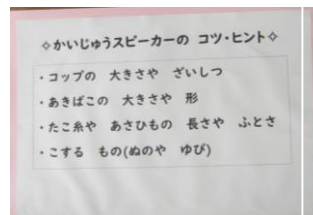 ✧かいじゅうスピーカーの コツ・ヒント✧
・コップの 大きさや ざいしつ
・あきばこの 大きさや 形
・たこ糸や あさひもの 長さや ふとさ
・こする もの(ぬのや ゆび)